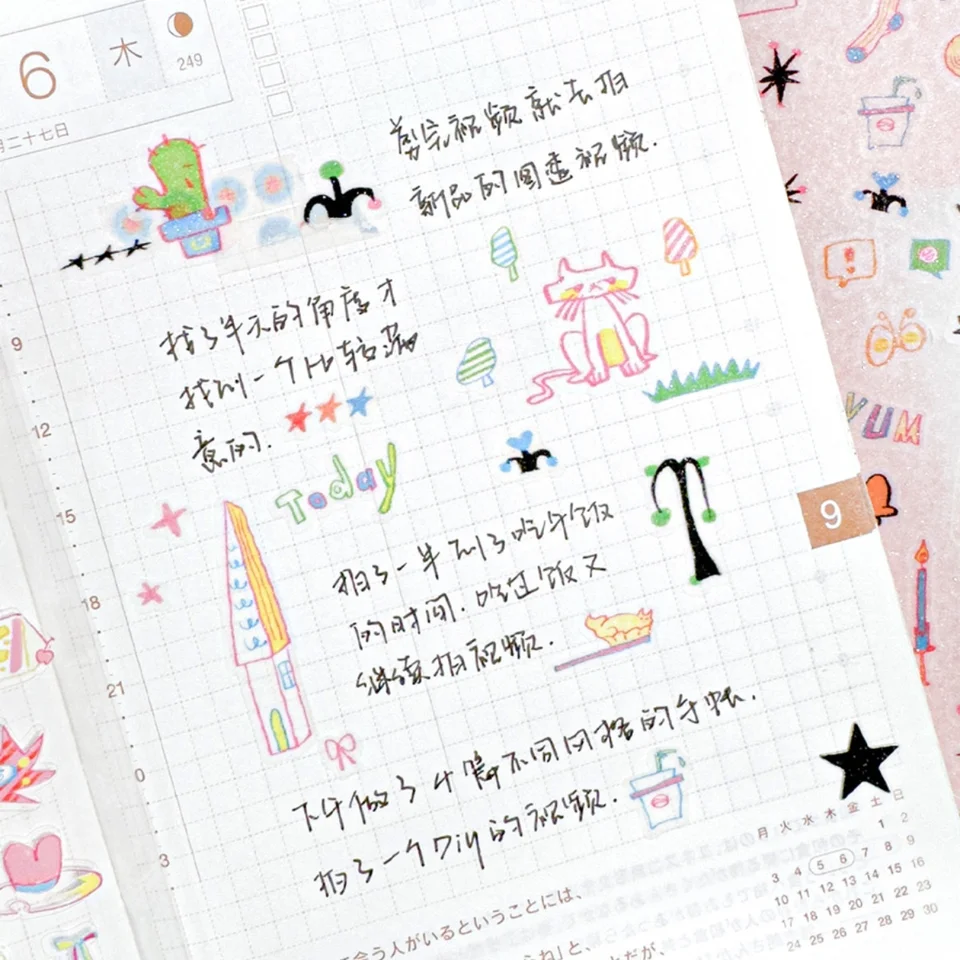 6 木
249
月二十七日
剪完视频就去拍
新品的圆透视频.
找了半天的角度才
找到一个比较满
意的.
Today
拍了一半到了吃午饭
的时间.吃过饭又
继续拍视频.
下午做了
不同风格的手帐.
拍了一个Diy的视频.
9
12
15
18
21
0
3
9
YUM
月 火 水 木 金 土 日
1 2
3 4 5 6 7 8 9
10 11 12 13 14 15 16
17 18 19 20 21 22 23
24 25 26 27 28 29 30
会う人がいるということには、
らね」と、
だが、